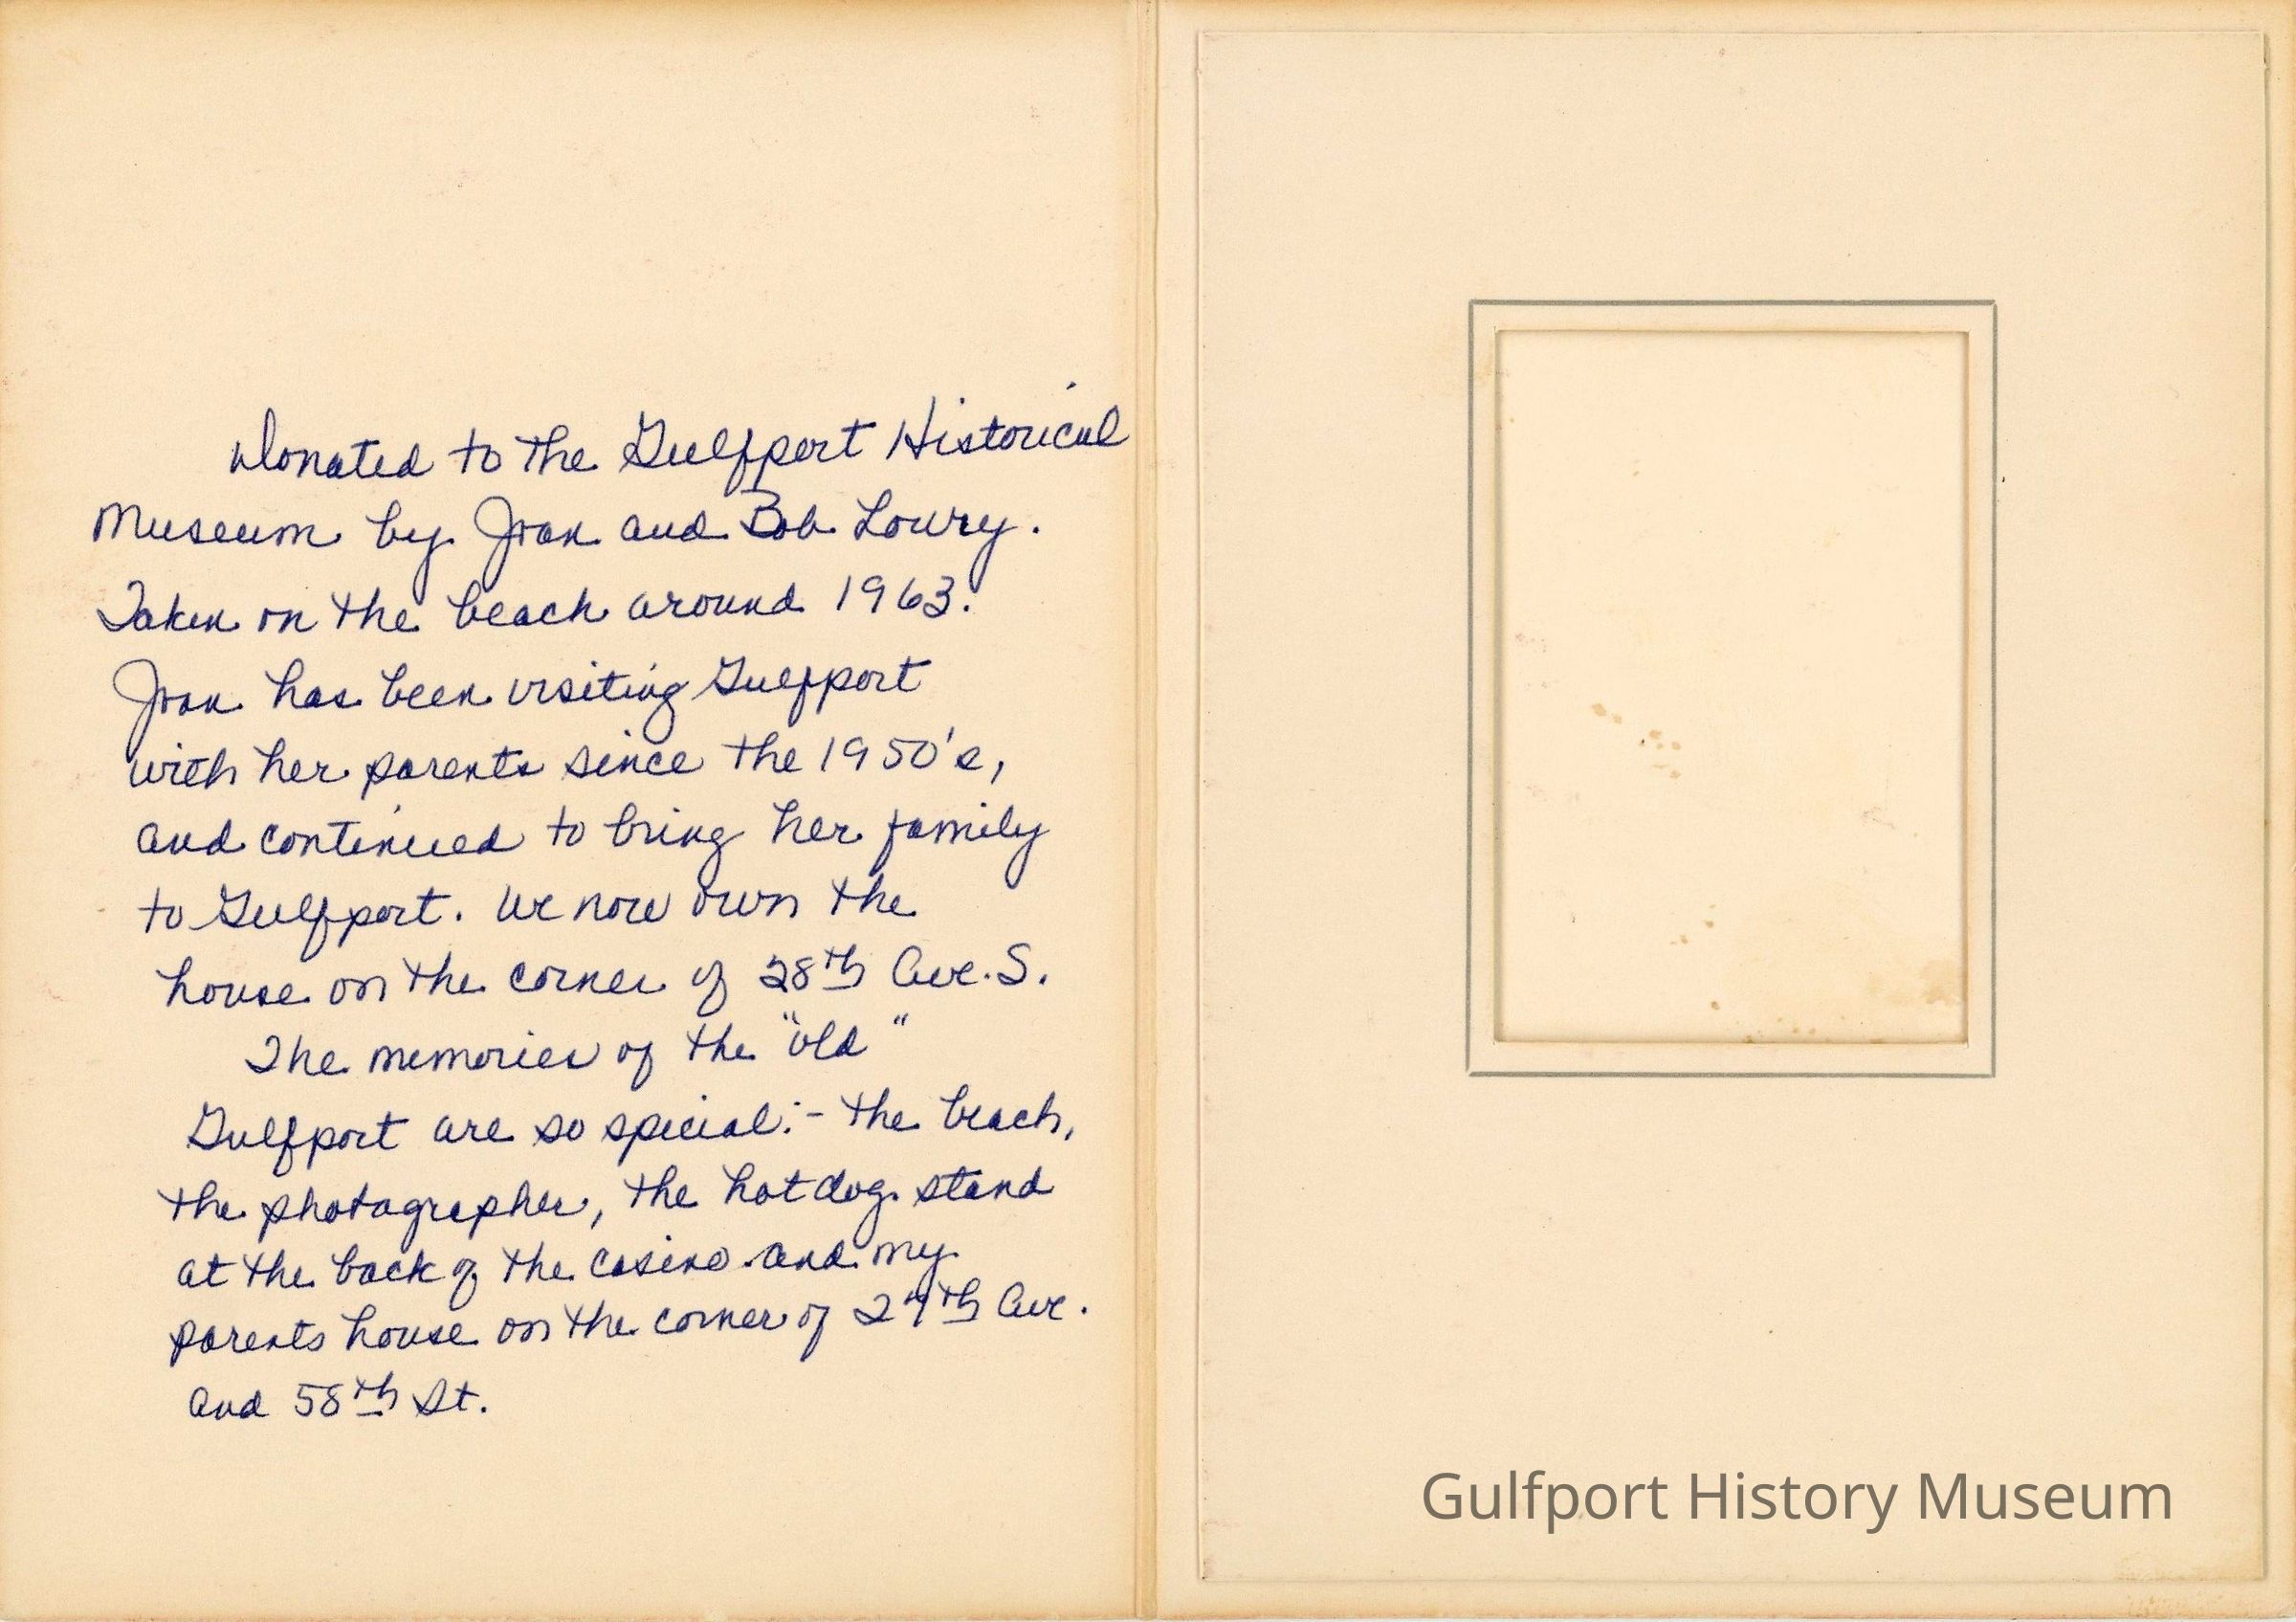 Donated to the Gulfport Historical
Museum by Joan and Bob Lowry.
Taken on the beach around 1963.
Joan has been visiting Gulfport
with her parents since the 1950's,
and continued to bring her family
to Gulfport. We now own the
house on the corner of 28th Ave. S.
The memories of the "old"
Gulfport are so special:- the beach,
the photographer, the hot dog stand
at the back of the casino and my
parents house on the corner of 29th Ave.
and 58th St.
Gulfport History Museum